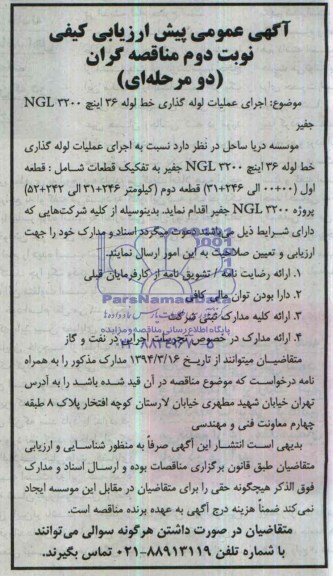 آگهی عمومی پیش ارزیابی کیفی
نوبت دوم مناقصه گران
(دو مرحله‌ای)
موضوع: اجرای عملیات لوله گذاری خط لوله ۳۶ اینچ NGL ۳۲۰۰
جفیر
موسسه دریا ساحل در نظر دارد نسبت به اجرای عملیات لوله گذاری
خط لوله ۳۶ اینچ NGL ۳۲۰۰ جفیر به تفکیک قطعات شامل : قطعه
اول (۰۰+۰۰ الی ۲۴۶+۳۱) قطعه دوم (کیلومتر ۲۴۶+۳۱ الی ۲۴۲+۵۲)
پروژه NGL ۳۲۰۰ جفیر اقدام نماید. بدینوسیله از کلیه شرکت‌هایی که
دارای شرایط ذیل می‌باشند دعوت میگردد اسناد و مدارک خود را جهت
ارزیابی و تعیین صلاحیت به این امور ارسال نمایند.
۱. ارائه رضایت نامه / تشویق نامه از کارفرمایان قبلی
۲. دارا بودن توان مالی کافی
۳. ارائه کلیه مدارک ثبتی شرکت
۴. ارائه مدارک در خصوص تجربیات اجرایی در نفت و گاز
متقاضیان میتوانند از تاریخ ۱۳۹۴/۳/۱۶ مدارک مذکور را به همراه
نامه درخواست که موضوع مناقصه در آن قید شده باشد را به آدرس
تهران خیابان شهید مطهری خیابان لارستان کوچه افتخار پلاک ۸ طبقه
چهارم معاونت فنی و مهندسی
بدیهی است انتشار این آگهی صرفاً به منظور شناسایی و ارزیابی
متقاضیان طبق قانون برگزاری مناقصات بوده و ارسال اسناد و مدارک
فوق الذکر هیچگونه حقی را برای متقاضیان در مقابل این موسسه ایجاد
نمی‌کند ضمناً هزینه درج آگهی به عهده برنده مناقصه است.
متقاضیان در صورت داشتن هرگونه سوالی می‌توانند
با شماره تلفن ۸۸۹۱۳۱۱۹-۰۲۱ تماس بگیرند.
ParsNamadData
پایگاه اطلاع رسانی مناقصه و مزایده